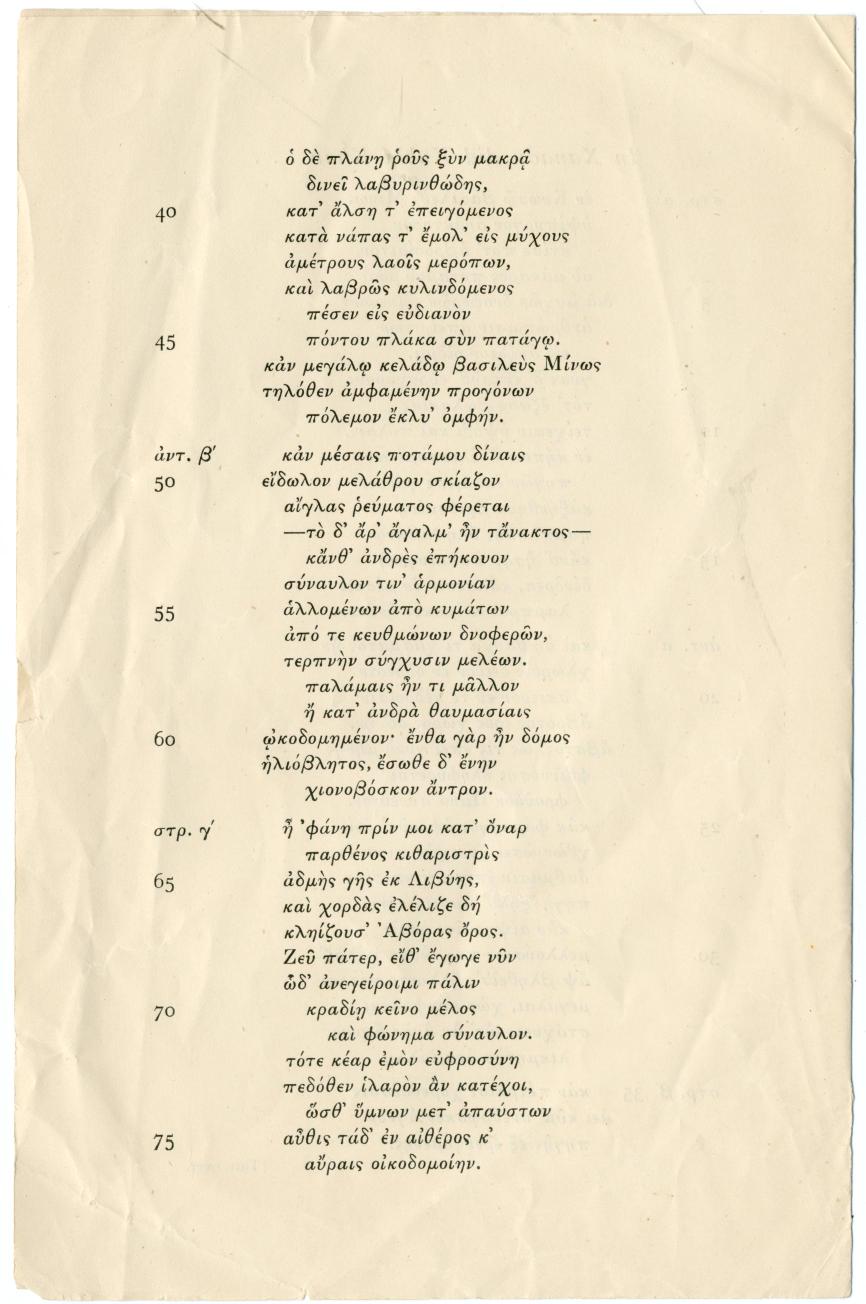 ὁ δὲ πλάνῃ ῥοῦς ξὺν μακρᾷ
δινεῖ λαβυρινθώδης,
40 κατ' ἄλση τ' ἐπειγόμενος
κατὰ νάπας τ' ἔμολ' εἰς μύχους
ἀμέτρους λαοῖς μερόπων,
καὶ λαβρῶς κυλινδόμενος
πέσεν εἰς εὐδιανὸν
45 πόντου πλάκα σὺν πατάγῳ.
κἀν μεγάλῳ κελάδῳ βασιλεὺς Μίνως
τηλόθεν ἀμφαμένην προγόνων
πόλεμον ἔκλυ' ὀμφήν.
ἀντ. β′ κἀν μέσαις ποτάμου δίναις
50 εἴδωλον μελάθρου σκίαζον
αἴγλας ῥεύματος φέρεται
—τὸ δ' ἄρ' ἄγαλμ' ἦν τἄνακτος—
κἄνθ' ἀνδρὲς ἐπήκουον
σύναυλον τιν' ἁρμονίαν
55 ἁλλομένων ἀπὸ κυμάτων
ἀπό τε κευθμώνων δνοφερῶν,
τερπνὴν σύγχυσιν μελέων.
παλάμαις ἦν τι μᾶλλον
ἤ κατ' ἀνδρὰ θαυμασίαις
60 ᾠκοδομημένον· ἔνθα γὰρ ἦν δόμος
ἡλιόβλητος, ἔσωθε δ' ἔνην
χιονοβόσκον ἄντρον.
στρ. γ′ ἦ 'φάνη πρίν μοι κατ' ὄναρ
παρθένος κιθαριστρὶς
65 ἀδμὴς γῆς ἐκ Λιβύης,
καὶ χορδὰς ἐλέλιζε δή
κληίζουσ' Ἀβόρας ὄρος.
Ζεῦ πάτερ, εἴθ' ἔγωγε νῦν
ὧδ' ἀνεγείροιμι πάλιν
70 κραδίῃ κεῖνο μέλος
καὶ φώνημα σύναυλον.
τότε κέαρ ἐμὸν εὐφροσύνη
πεδόθεν ἱλαρὸν ἂν κατέχοι,
ὥσθ' ὕμνων μετ' ἀπαύστων
75 αὖθις τάδ' ἐν αἰθέρος κ'
αὔραις οἰκοδομοίην.